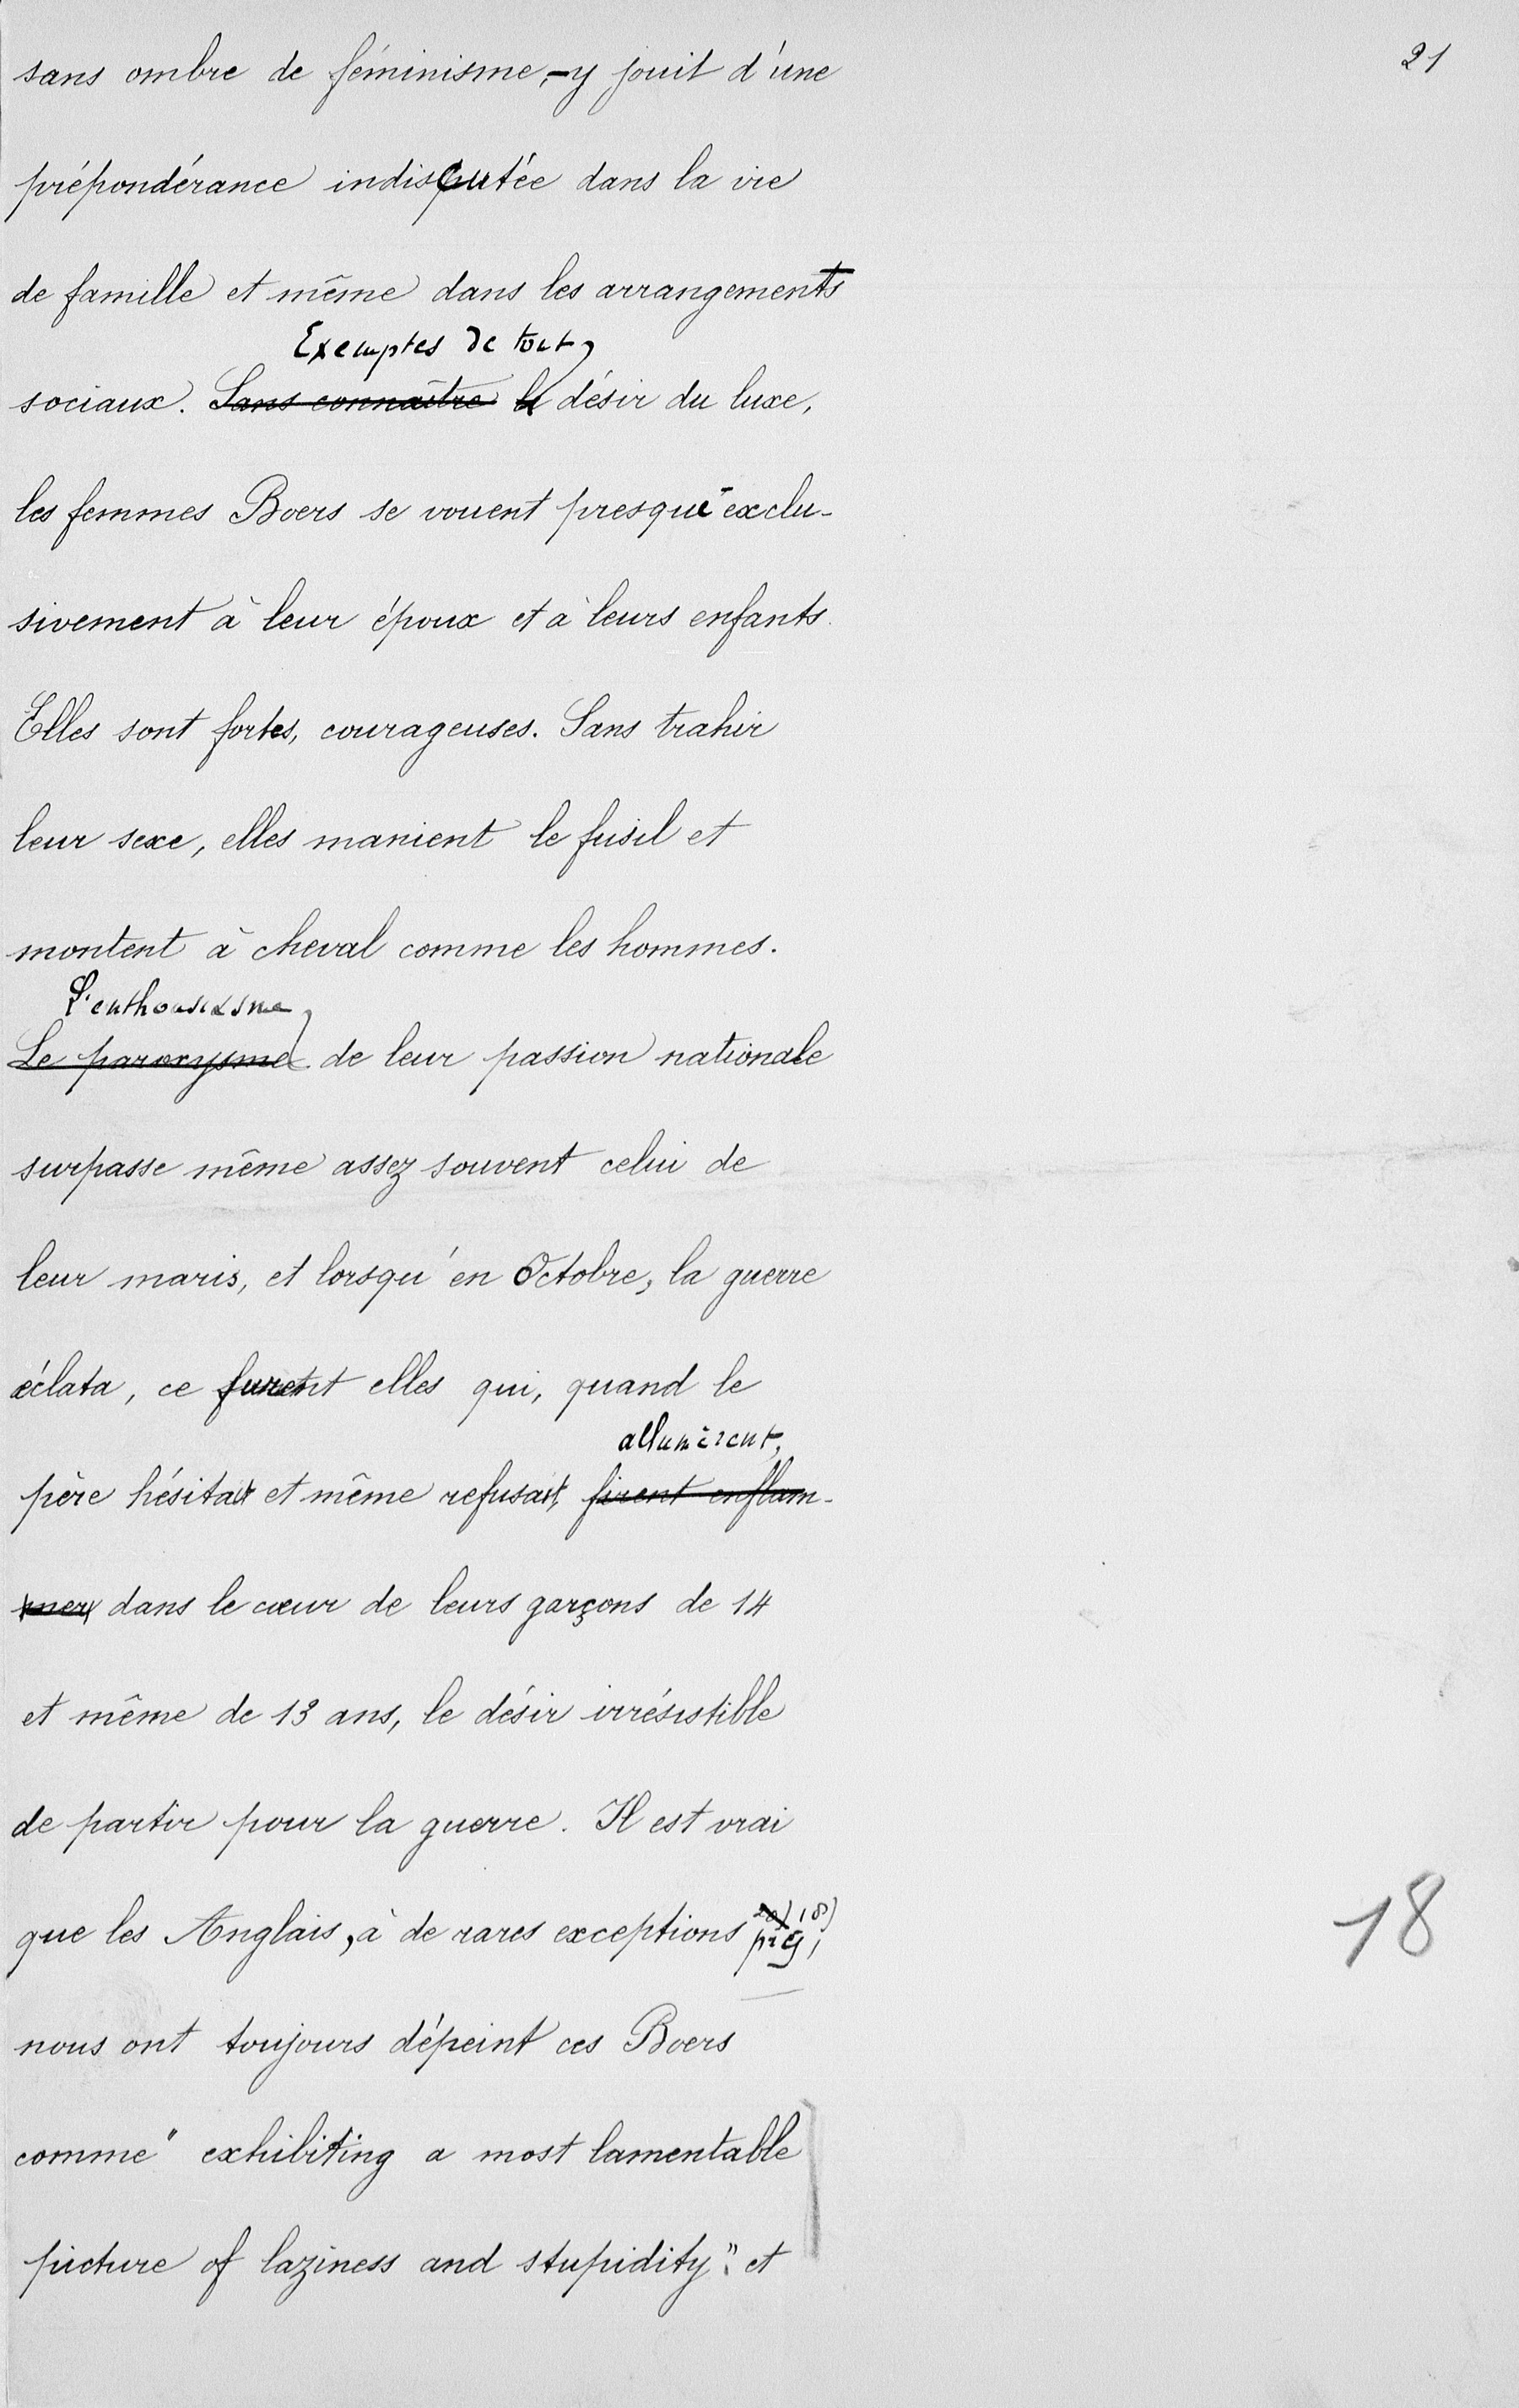 21
sans ombre de féminisme,-y jouit d'une
prépondérance indiscutée dans la vie
de famille et même dans les arrangements
Exemptes de tout
sociaux. Sans connaître le désir du luxe,
les femmes Boers se vouent presque exclu-
sivement à leur époux et à leurs enfants.
Elles sont fortes, courageuses. Sans trahir
leur sexe, elles manient le fusil et
montent à cheval comme les hommes.
L'enthousiasme
Le paroxysme de leur passion nationale
surpasse même assez souvent celui de
leur maris, et lorsqu'en Octobre, la guerre
éclata, ce furent elles qui, quand le
allumèrent,
père hésitait et même refusait, firent enflam-
mer dans le cœur de leurs garçons de 14
et même de 13 ans, le désir irrésistible
de partir pour la guerre. Il est vrai
18)
que les Anglais, à de rares exceptions près,
18
nous ont toujours dépeint ces Boers
comme " exhibiting a most lamentable
picture of laziness and stupidity". et